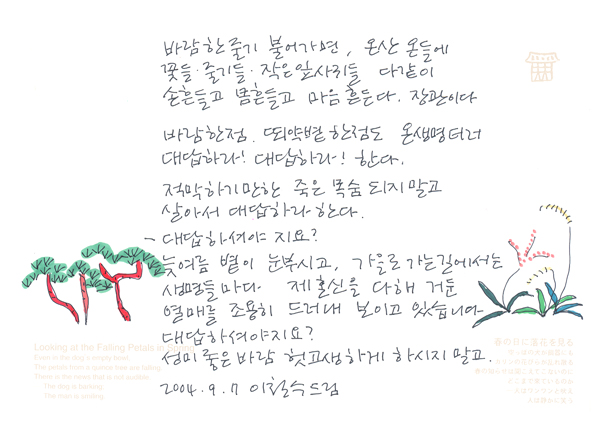 바람 한 줄기 불어가면, 온산 온들에
꽃들·줄기들·작은 잎사귀들 다같이
손흔들고 몸흔들고 마음 흔든다. 장관이다
바람 한점. 뙤약볕 한점도 온생명더러
대답하라! 대답하라! 한다.
적막하기만한 죽은 목숨 되지말고
살아서 대답하라 한다.
- 대답하셔야 지요?
늦여름 볕이 눈부시고, 가을로 가는길에서는
생명들마다 제 혼신을 다해 거둔
열매를 조용히 드러내 보이고 있습니다
대답하셔야지요?
성미 좋은 바람 헛고생하게 하시지 말고.
2004.9.7 이철수 드림
Looking at the Falling Petals in Spring
Even in the dog's empty bowl
The petals from a quince tree are falling.
There is the news that is not audible.
The dog is barking.
The man is smiling.
春の日に落花を見る